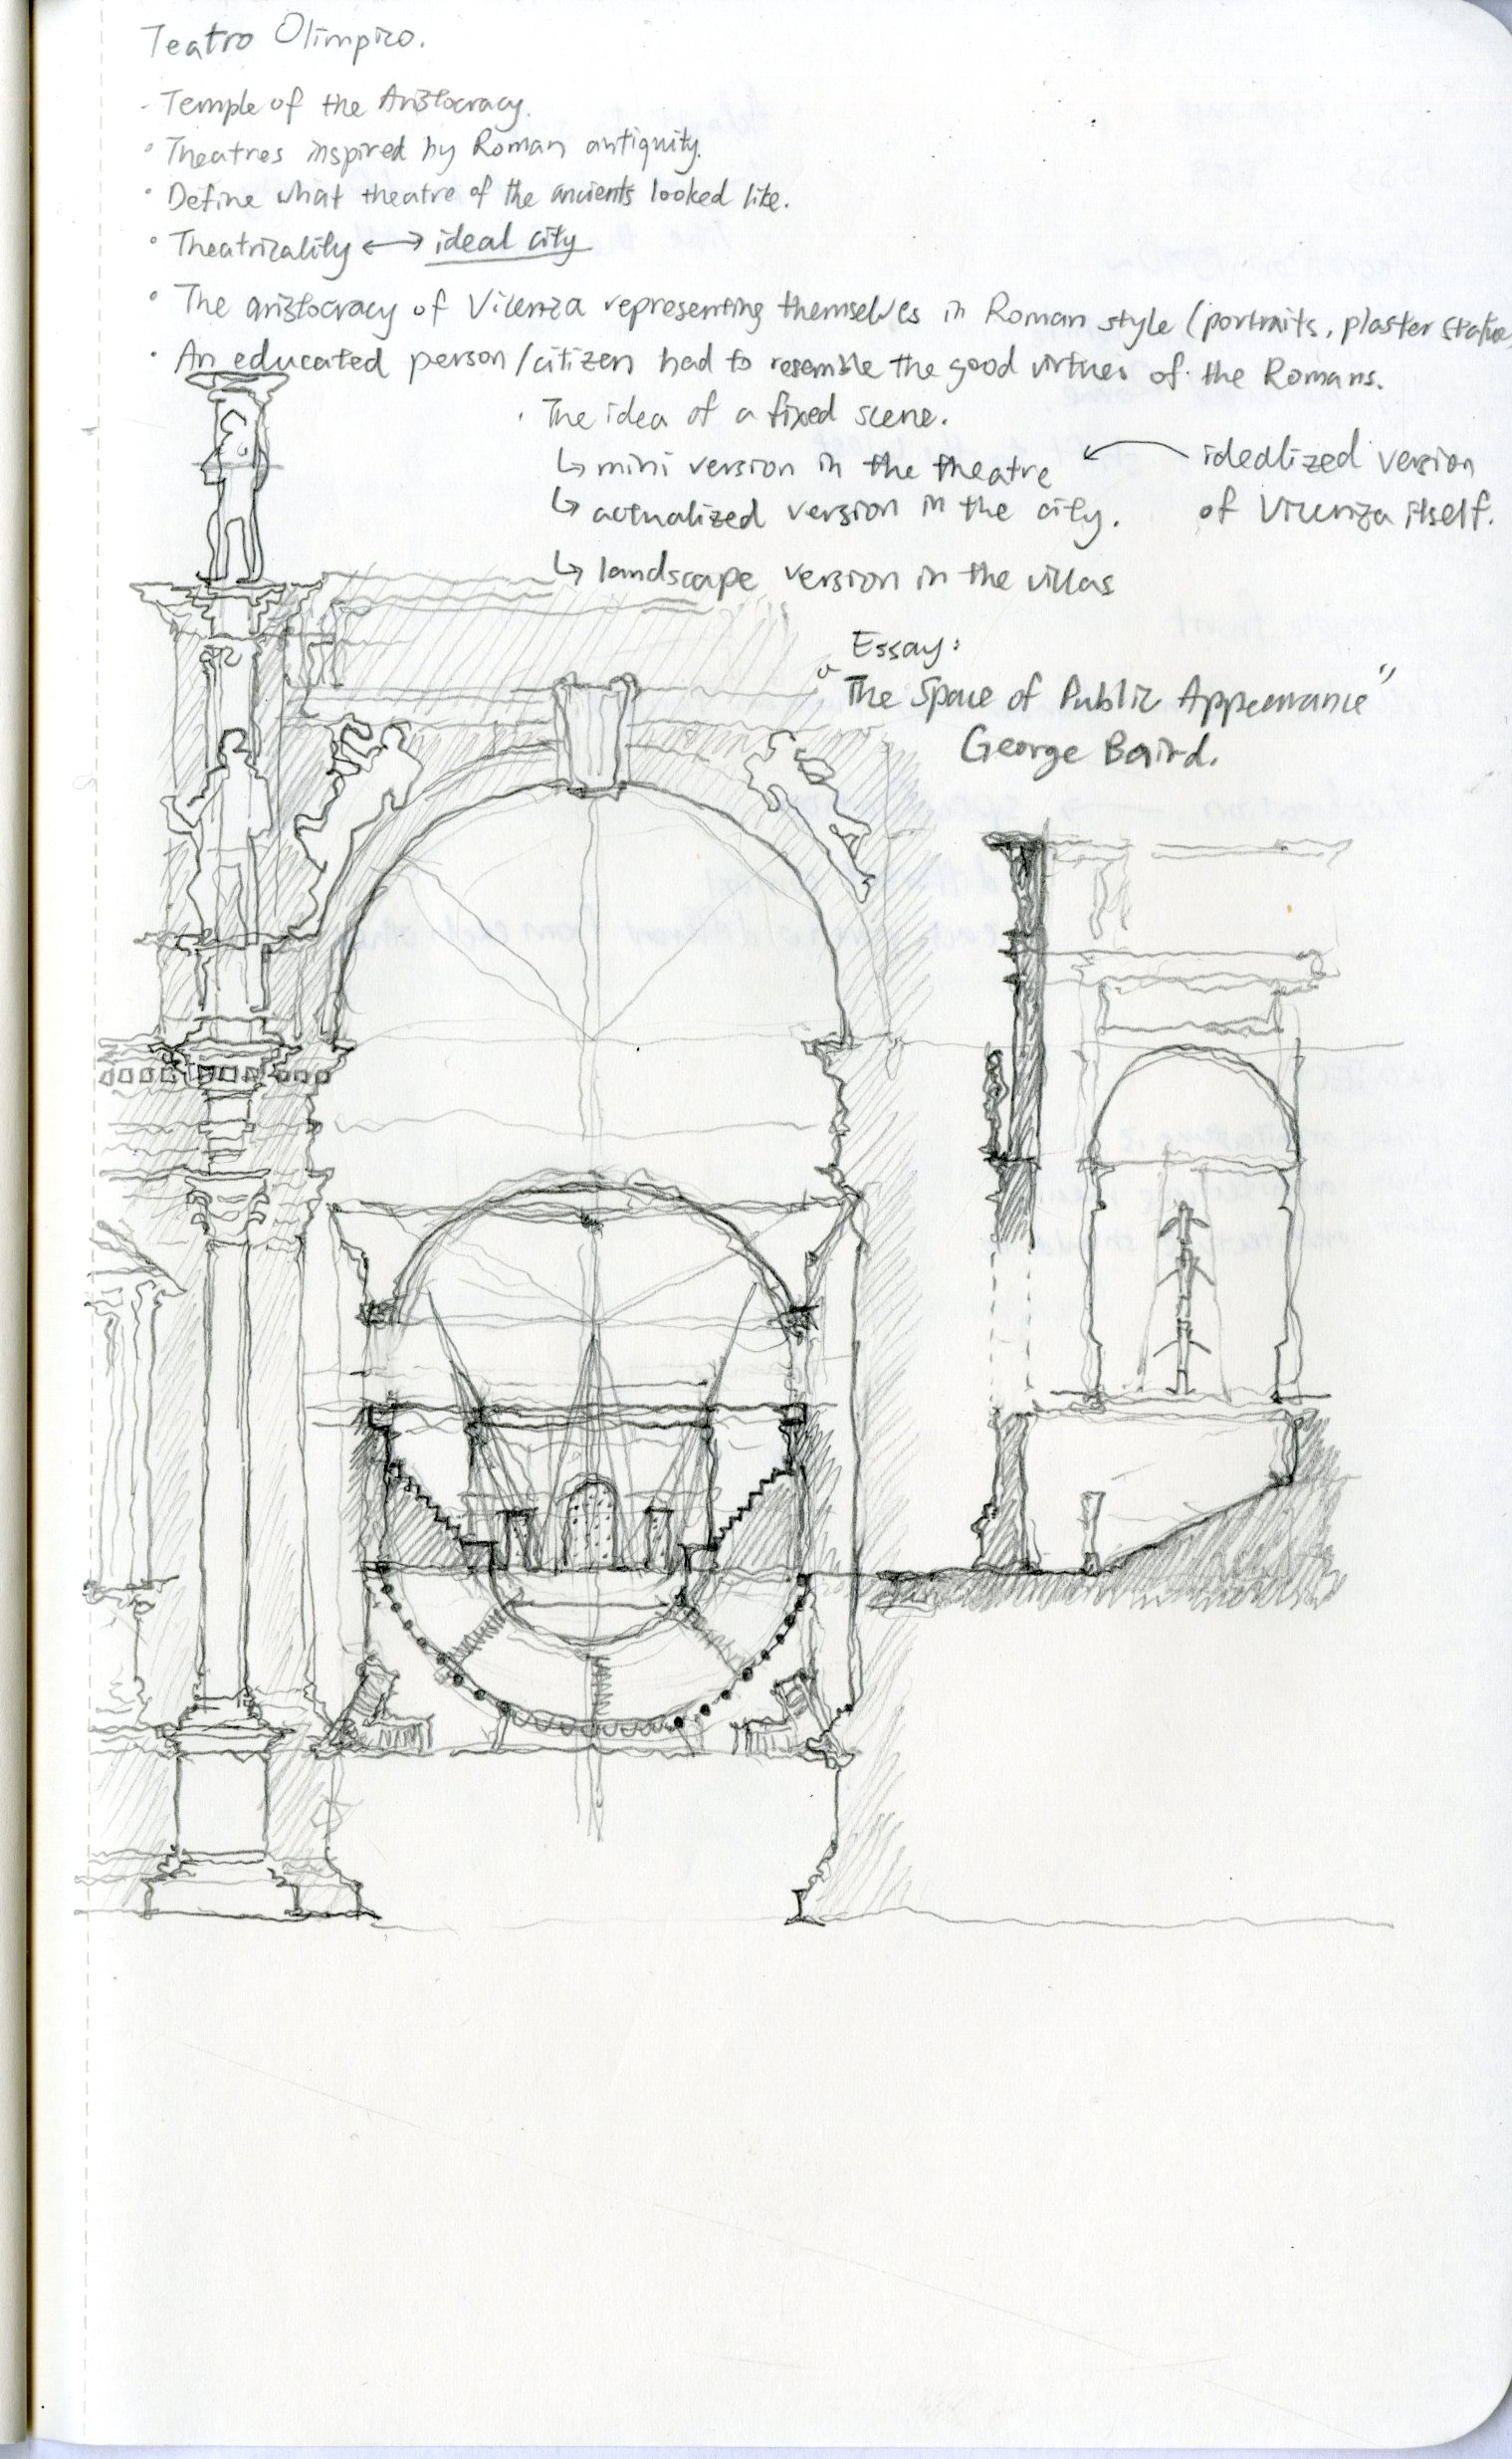 Teatro Olimpico.
- Temple of the Aristocracy.
• Theatres inspired by Roman antiquity.
• Define what theatre of the ancients looked like.
• Theatricality ↔ ideal city
• The aristocracy of Vicenza representing themselves in Roman style (portraits, plaster statue
• An educated person/citizen had to resemble the good virtues of the Romans.
· The idea of a fixed scene.
↳ mini version in the theatre ← idealized version
↳ actualized version in the city. of Vicenza itself.
↳ landscape version in the villas
Essay:
"The Space of Public Appearance"
George Baird.